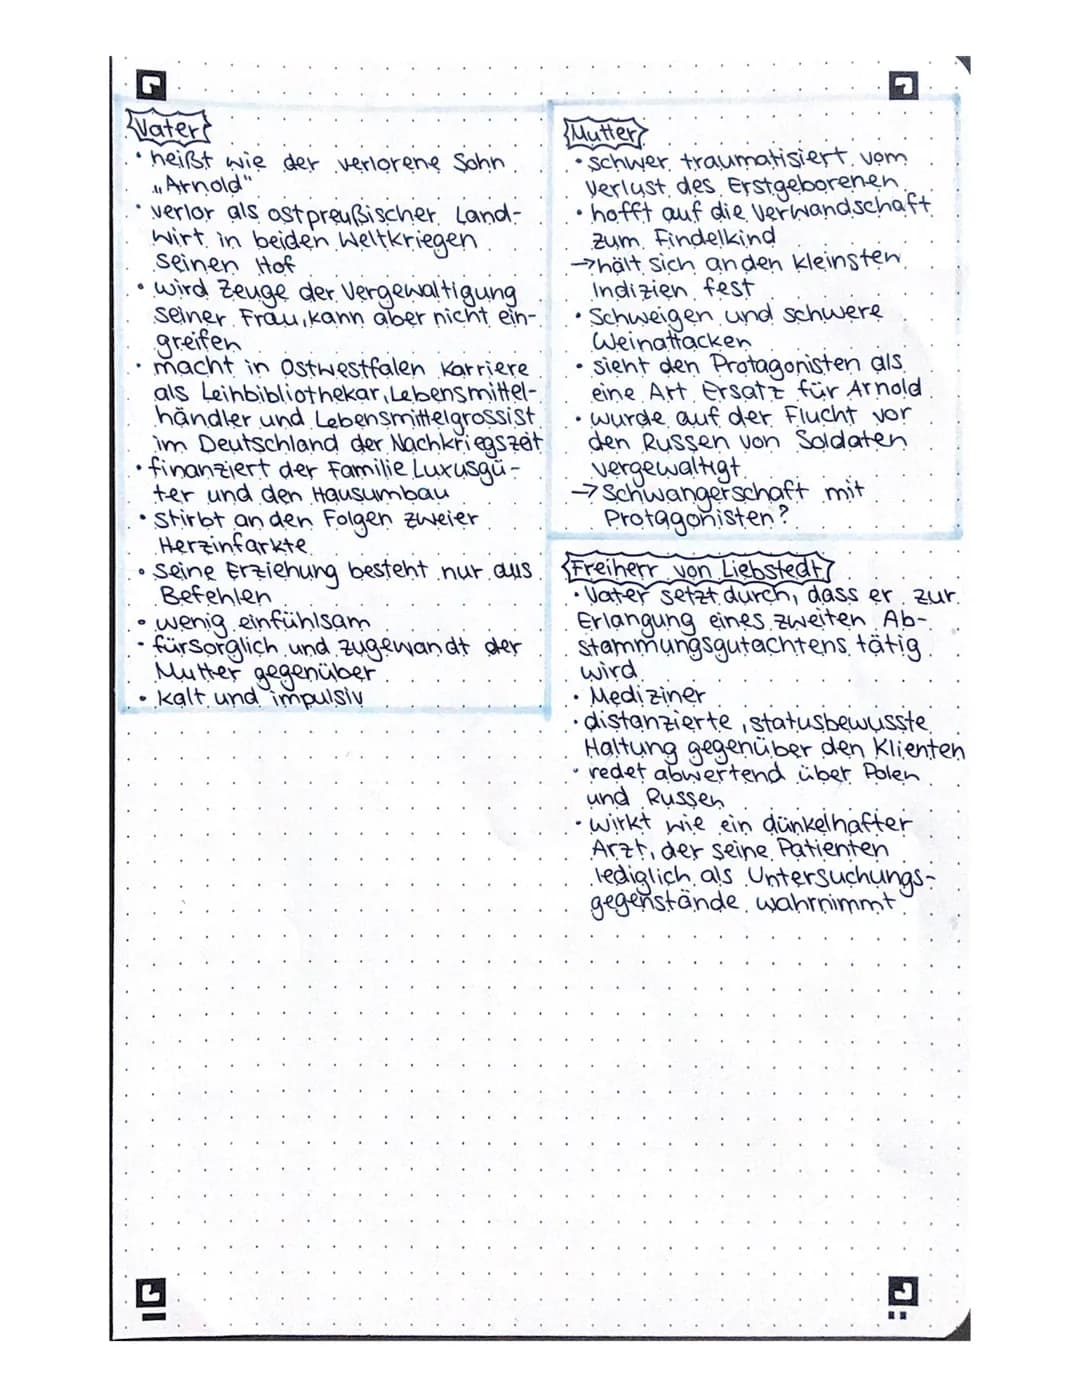 Vater
• heißt wie der verlorene Sohn
„Arnold"
• verlor als ostpreußischer Land-
wirt in beiden Weltkriegen
seinen Hof
• wird Zeuge der Vergewaltigung
seiner Frau, kann aber nicht ein-
greifen
• macht in Ostwestfalen Karriere
als Leihbibliothekar, Lebensmittel-
händler und Lebensmittelgrossist
im Deutschland der Nachkriegszeit
• finanziert der Familie Luxusgü-
ter und den Hausumbau
• stirbt an den Folgen zweier
Herzinfarkte
• seine Erziehung besteht nur aus
Befehlen
• wenig einfühlsam
• fürsorglich und zugewandt der
Mutter gegenüber
• kalt und impulsiv
Mutter
• schwer traumatisiert vom
Verlust des Erstgeborenen
• hofft auf die Verwandschaft
zum Findelkind
→ hält sich an den kleinsten
Indizien fest
• Schweigen und schwere
Weinattacken
• sieht den Protagonisten als
eine Art Ersatz für Arnold
• wurde auf der Flucht vor
den Russen von Soldaten
vergewaltigt
→ Schwangerschaft mit
Protagonisten?
Freiherr von Liebstedt
• Vater setzt durch, dass er zur
Erlangung eines zweiten Ab-
stammungsgutachtens tätig
wird
• Mediziner
• distanzierte, statusbewusste
Haltung gegenüber den Klienten
• redet abwertend über Polen
und Russen
• wirkt wie ein dünkelhafter
Arzt, der seine Patienten
lediglich als Untersuchungs-
gegenstände wahrnimmt